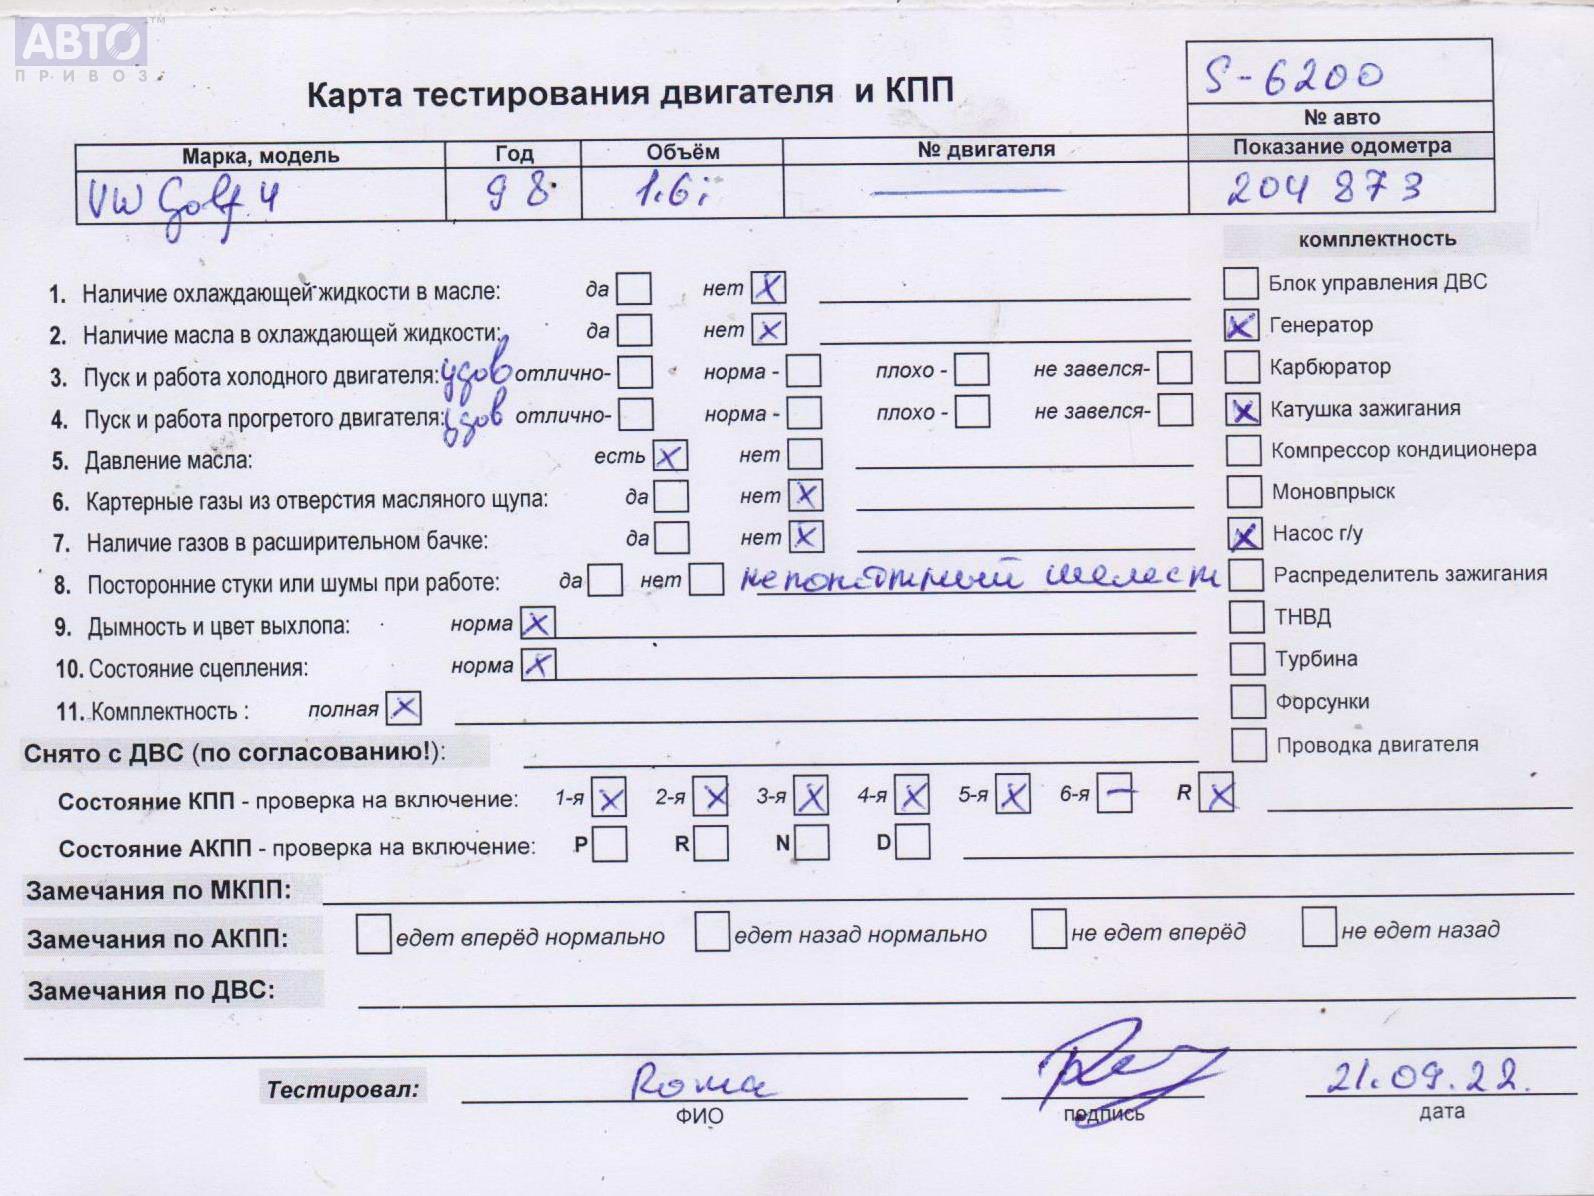 АВТО™
ПРИВОЗ
S-6200
Карта тестирования двигателя и КПП
№ авто
Марка, модель Год Объём № двигателя Показание одометра
VW Golf 4 98 1.6i — 204 873
комплектность
1. Наличие охлаждающей жидкости в масле: да нет X
Блок управления ДВС
2. Наличие масла в охлаждающей жидкости: да нет X
X Генератор
3. Пуск и работа холодного двигателя: удов отлично- норма - плохо - не завелся-
Карбюратор
4. Пуск и работа прогретого двигателя: удов отлично- норма - плохо - не завелся-
X Катушка зажигания
5. Давление масла: есть X нет
Компрессор кондиционера
6. Картерные газы из отверстия масляного щупа: да нет X
Моновпрыск
7. Наличие газов в расширительном бачке: да нет X
X Насос г/у
8. Посторонние стуки или шумы при работе: да нет непонятный шелест
Распределитель зажигания
9. Дымность и цвет выхлопа: норма X
ТНВД
10. Состояние сцепления: норма X
Турбина
11. Комплектность : полная X
Форсунки
Снято с ДВС (по согласованию!):
Проводка двигателя
Состояние КПП - проверка на включение: 1-я X 2-я X 3-я X 4-я X 5-я X 6-я — R X
Состояние АКПП - проверка на включение: P R N D
Замечания по МКПП:
Замечания по АКПП: едет вперёд нормально едет назад нормально не едет вперёд не едет назад
Замечания по ДВС:
Тестировал: Roma 21.09.22.
ФИО подпись дата